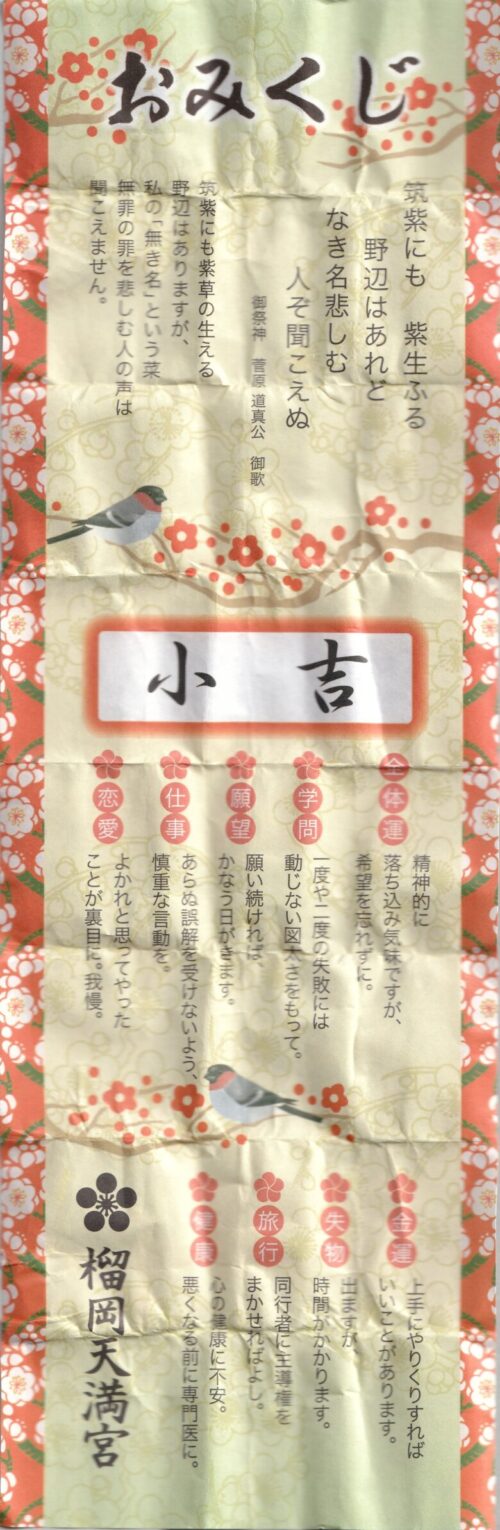 おみくじ
筑紫にも　紫生ふる
野辺はあれど
なき名悲しむ
人ぞ聞こえぬ
御祭神　菅原道真公　御歌
筑紫にも紫草の生える
野辺はありますが、
私の「無き名」という菜
無罪の罪を悲しむ人の声は
聞こえません。
小吉
全体運
精神的に
落ち込み気味ですが、
希望を忘れずに。
学問
一度や二度の失敗には
動じない図太さをもって。
願望
願い続ければ、
かなう日がきます。
仕事
あらぬ誤解を受けないよう、
慎重な言動を。
恋愛
よかれと思ってやった
ことが裏目に。我慢。
金運
上手にやりくりすれば
いいことがあります。
失物
出ますが、
時間がかかります。
旅行
同行者に主導権を
まかせればよし。
健康
心の健康に不安。
悪くなる前に専門医に。
榴岡天満宮